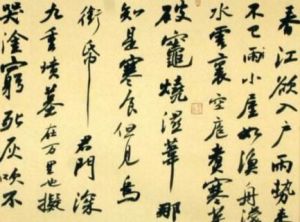 春江欲入戶雨勢來
不已雨小屋如漁舟
水雲裏空庖煮寒菜
破竈燒濕葦那
知是寒食但見烏
銜帋君門深
九重墳墓在万里也擬
哭塗窮死灰吹不